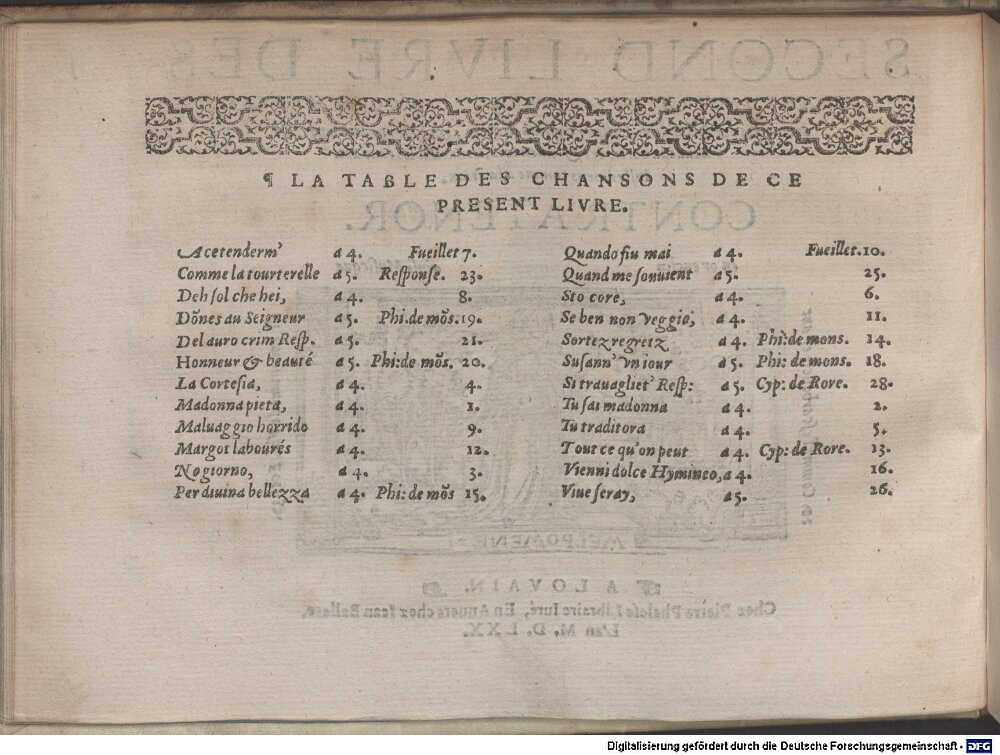 ¶ LA TABLE DES CHANSONS DE CE
PRESENT LIVRE.
Acetenderm' a 4. Fueillet 7.
Comme la tourterelle a 5. Response. 23.
Deh sol che hei, a 4. 8.
Dõnes au Seigneur a 5. Phi. de mõs. 19.
Del auro crim Resp. a 5. 21.
Honneur & beauté a 5. Phi: de mõs. 20.
La Cortesia, a 4. 4.
Madonna pieta, a 4. 1.
Maluaggio horrido a 4. 9.
Margot labourés a 4. 12.
No giorno, a 4. 3.
Per diuina bellezza a 4. Phi: de mõs 15.
Quando fiu mai a 4. Fueillet. 10.
Quand me souuient a 5. 25.
Sto core, a 4. 6.
Se ben non veggio, a 4. 11.
Sortez regretz a 4. Phi: de mons. 14.
Susann' vn iour a 5. Phi: de mons. 18.
Si trauagliet' Resp: a 5. Cyp: de Rore. 28.
Tu sai madonna a 4. 2.
Tu traditora a 4. 5.
Tout ce qu'on peut a 4. Cyp: de Rore. 13.
Vienni dolce Hymineo, a 4. 16.
Viue seray, a 5. 26.
SECOND LIVRE DES
CONTRATENOR.
MELPOMENE
A LOVAIN.
Chez Pierre Phalese Libraire Iuré, En Anuers chez Iean Bellere.
L'an M. D. LXX.
Digitalisierung gefördert durch die Deutsche Forschungsgemeinschaft - DFG